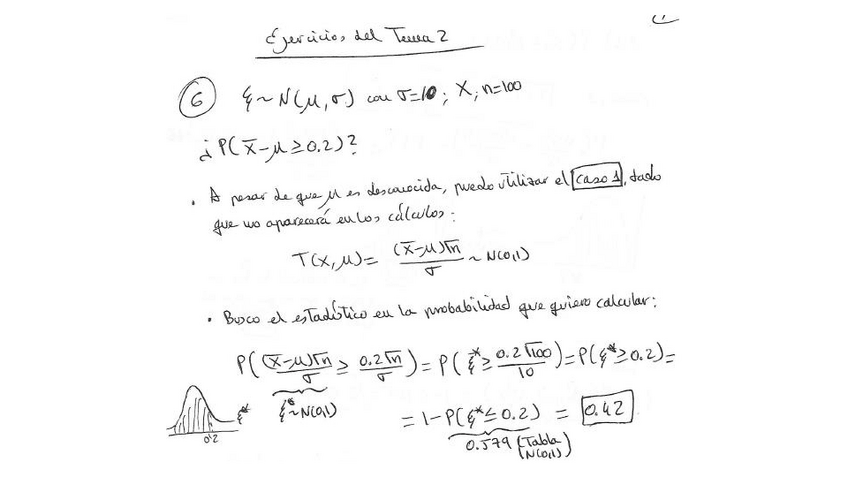 Ejercicios del Tema 2
6 ξ ~ N(μ, σ) con σ=10; X, n=100
¿P(X̄-μ ≥ 0.2)?
· A pesar de que μ es desconocida, puedo utilizar el caso 1, dado
que no aparecerá en los cálculos:
T(X, μ) = (X̄-μ)√n / σ ~ N(0,1)
· Busco el estadístico en la probabilidad que quiero calcular:
P((X̄-μ)√n / σ ≥ 0.2√n / σ) = P(ξ* ≥ 0.2√100 / 10) = P(ξ* ≥ 0.2) =
ξ* ~ N(0,1)
= 1-P(ξ* ≤ 0.2) = 0.42
0.579 (Tabla N(0,1))
ξ*
0.2